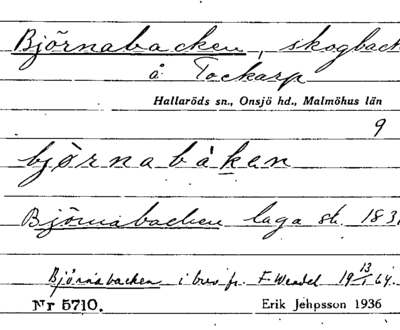 Björnabacken, skogback
å Tockarp
Hallaröds sn., Onsjö hd., Malmöhus län
9
björnabàkan
Björnabacken laga sk. 183
Björnabacken i brev fr. F. Wendel 19 13/1 64.
Nr 5710. Erik Jehpsson 1936